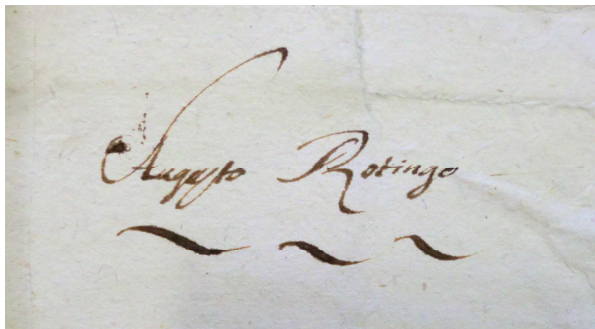 Augusto Rotingo